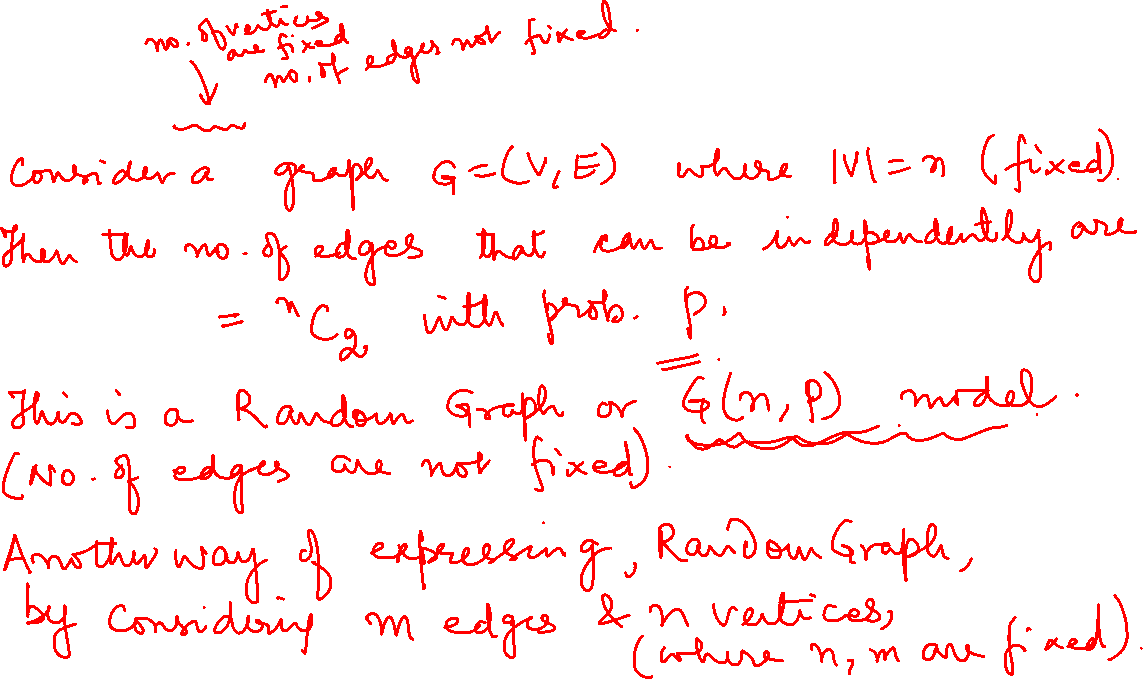 no. of vertices
are fixed
no. of edges not fixed.
Consider a graph G=(V,E) where |V|=n (fixed).
Then the no. of edges that can be independently are
= ⁿC₂ with prob. p.
This is a Random Graph or G(n,p) model.
(No. of edges are not fixed).
Another way of expressing, Random Graph,
by considering m edges & n vertices,
(where n, m are fixed).